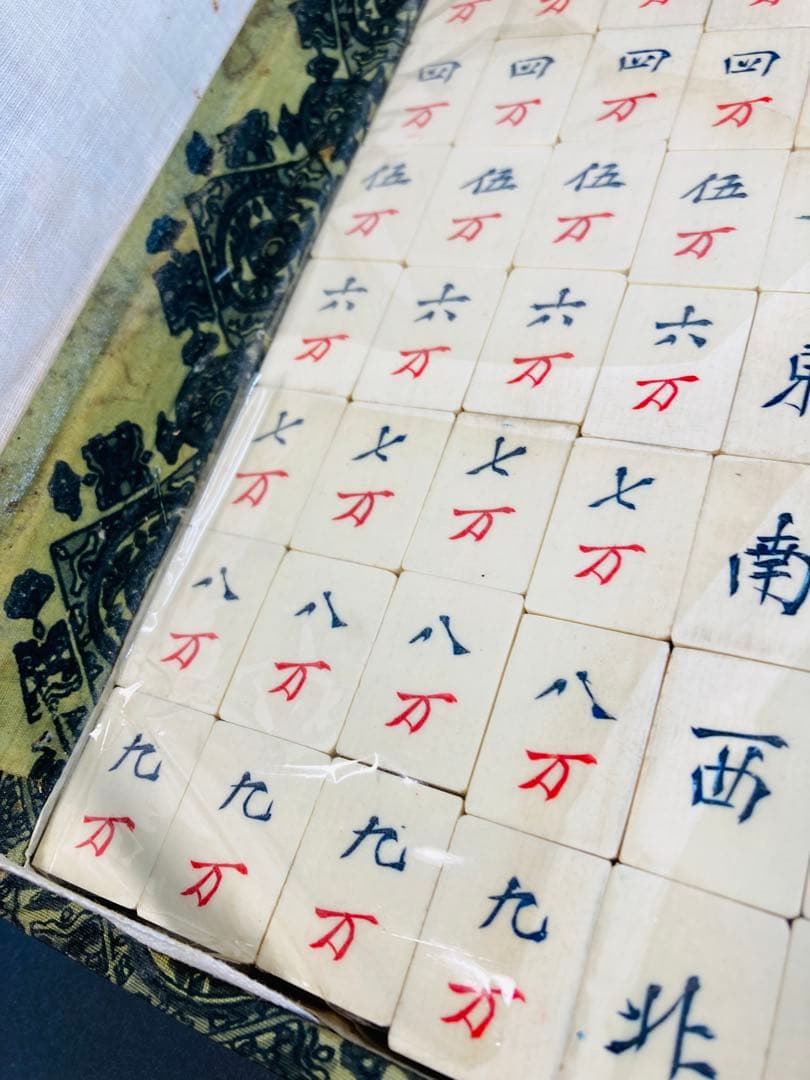 万 万 万 万
四 四 四 四
万 万 万 万
伍 伍 伍 伍
万 万 万 万
六 六 六 六
万 万 万 万
東
七 七 七 七
万 万 万 万
南
八 八 八 八
万 万 万 万
西
九 九 九 九
万 万 万 万
北